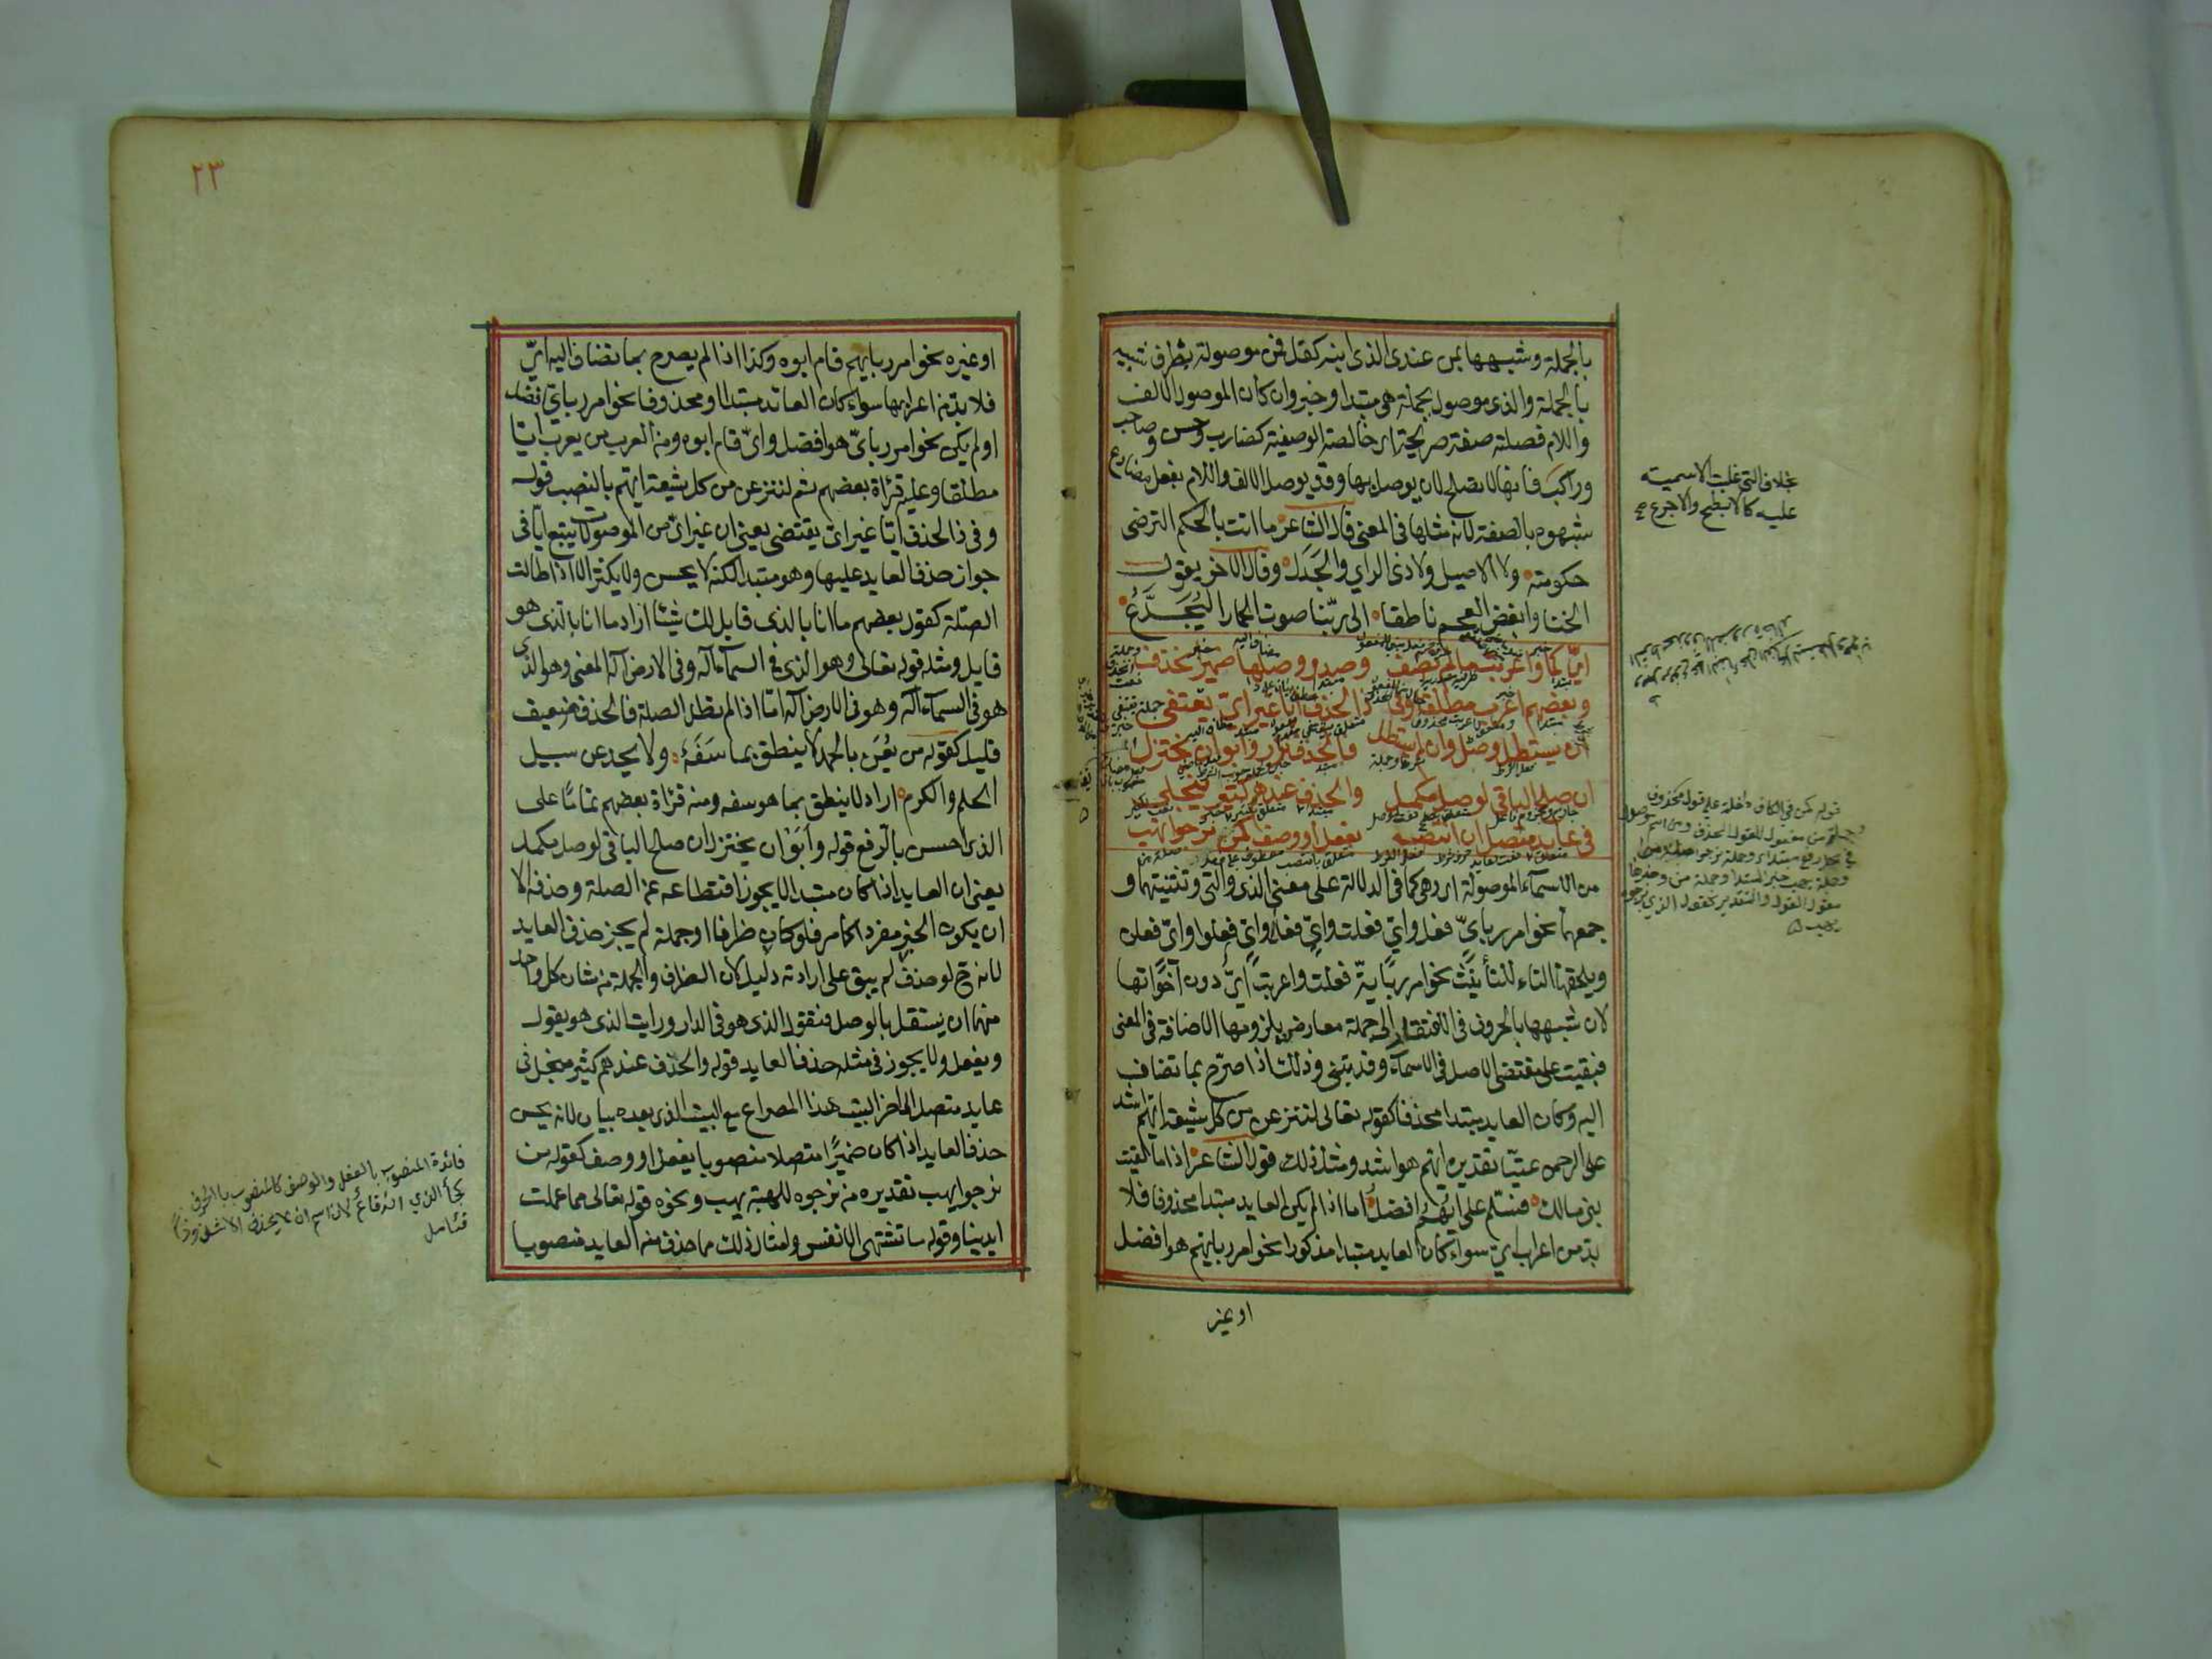 بالجملة وشبهها بمن عندى الذى ابنه كفل فمن موصولة بظرف شبيه
بالجملة والذى موصول بجملة هى مبتدا وخبر وان كان الموصول الالف
واللام فصلته صفة صريحة اى خالصة الوصفية كضارب وحسن وصاحب
وراكب فانها لا تصلح لان يوصل بها وقد يوصل الالف واللام بفعل مضارع
شبهوه بالصفة لانه مثلها فى المعنى قال الشاعر ما انت بالحكم الترضى
حكومته ولا الاصيل ولا ذى الراي والجدل وقال الاخر يقول
الخنا وابغض العجم ناطقا الى ربنا صوت الحمار اليجدع
اى كما واعربت ما لم تضف وصدر وصلها ضمير انحذف
وبعضهم اعرب مطلقا وفى ذا الحذف ايا غير اى يقتفى
ان يستطل وصل وان لم يستطل فالحذف نزر وابوا ان يختزل
ان صلح الباقى لوصل مكمل والحذف عندهم كثير منجلى
فى عايد متصل ان انتصب بفعل او وصف كمن نرجو يهب
من الاسماء الموصولة اى وهى كما فى الدلالة على معنى الذى والتى وتثنيتهما و
جمعهما نحو امرر باىّ فعل واىّ فعلت واىّ فعلا واىّ فعلوا واىّ فعلن
ويلحقها التاء للتأنيث نحو امرر باية فعلت واعربت اىّ دون اخواتها
لان شبهها بالحروف فى الافتقار الى جملة معارض بلزومها الاضافة فى المعنى
فبقيت على مقتضى الاصل فى الاسماء وقد يبنى وذلك اذا صرّح بما تضاف
اليه وكان العايد مبتدا محذفا كقوله تعالى لننزعن من كل شيعة ايهم اشد
على الرحمن عتيّا تقديره ايهم هو اشد ومثل ذلك قول الشاعر اذا ما لقيت
بنى مالك فسلّم على ايّهم افضل اما اذا لم يكن العايد مبتدا محذوفا فلا
بدّ من اعراب اىّ سواء كان العايد مبتدا مذكورا نحو امرر بايهم هو افضل
او غير
بخلاف التى غلبت الاسمية
عليه كالابطح والاجرع صح
٢٣
او غيره نحو امرر بايهم قام ابوه وكذا اذا لم يصرح بما تضاف اليه اىّ
فلا بدّ من اعرابها سواء كان العائد مبتدا او محذوفا نحو امرر باىّ افضل
او لم يكن نحو امرر باىّ هو افضل واىّ قام ابوه ومن العرب من يعرب ايّا
مطلقا وعليه قرأة بعضهم ثم لننزعن من كل شيعة ايهم بالنصب قوله
وفى ذا الحذف ايّا غير اىّ يقتضى يعنى ان غير اىّ من الموصولات يتبع ايا فى
جواز حذف العايد عليها وهو مبتدا لكنه لا يحسن ولا يكثر الا اذا طالت
الصّلة كقول بعضهم ما انا بالذى قايل لك شيئا اراد ما انا بالذى هو
قايل ومثله قوله تعالى وهو الذى فى السماء اله وفى الارض اله المعنى وهو الذى
هو فى السماء اله وهو فى الارض اله امّا اذا لم تطل الصلة فالحذف ضعيف
قليل كقوله من يُعنَ بالحمد لا ينطق بما سَفَهٌ ولا يحد عن سبيل
الحلم والكرم اراد لا ينطق بما هو سفه ومنه قرأة بعضهم تماما على
الذى احسن بالرفع قوله وابوا ان يختزل ان صلح الباقى لوصل مكمل
يعنى ان العايد اذا كان مبتدا لا يجوز اقتطاعه عن الصلة وحذفه الا
ان يكون الخبر مفردا كما مر فلو كان ظرفا او جملة لم يجز حذف العايد
لانه ح لو حذف لم يبق على ارادته دليل لان الظرف والجملة من شان كل واحد
منهما ان يستقل بالوصل فتقول الذى هو فى الدار ورايت الذى هو يقول
ويفعل ولا يجوز فى مثله حذف العايد قوله والحذف عندهم كثير منجل فى
عايد متصل الى اخر البيت هذا المصراع مع البيت الذى بعده بيان لانه يحسن
حذف العايد اذا كان ضميرًا متصلا منصوبا بفعل او وصف كقوله من
نرجو يهب تقديره من نرجوه للهبة يهب ونحوه قوله تعالى مما عملت
ايدينا وقوله ما تشتهى الانفس وامثال ذلك مما حذف منه العايد منصوبا
فائدة المنصوب بالفعل والوصف كالمنصوب بالحرف
فتأمل